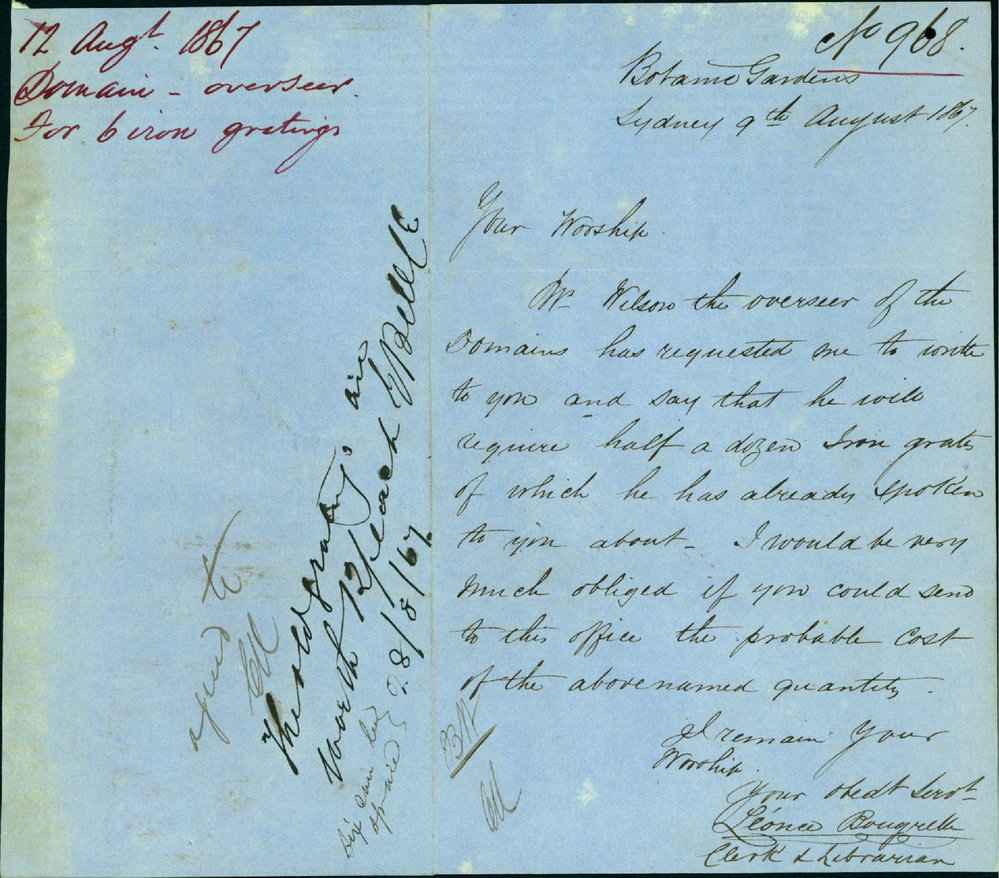 12 Augt. 1867
Domain - overseer.
For 6 iron gratings
No 968.
Botanic Gardens
Sydney 9th August 1867.
Your Worship.
Mr Wilson the overseer of the
Domains has requested me to write
to you and say that he will
require half a dozen Iron grates
of which he has already spoken
to you about - I would be very
much obliged if you could send
to this office the probable cost
of the abovenamed quantity.
I remain Your
Worship.
Your obedt Servt
Léonce Rougrelle
Clerk & Librarian
The old gratings are
worth 12/ each
28/8/67
six can be